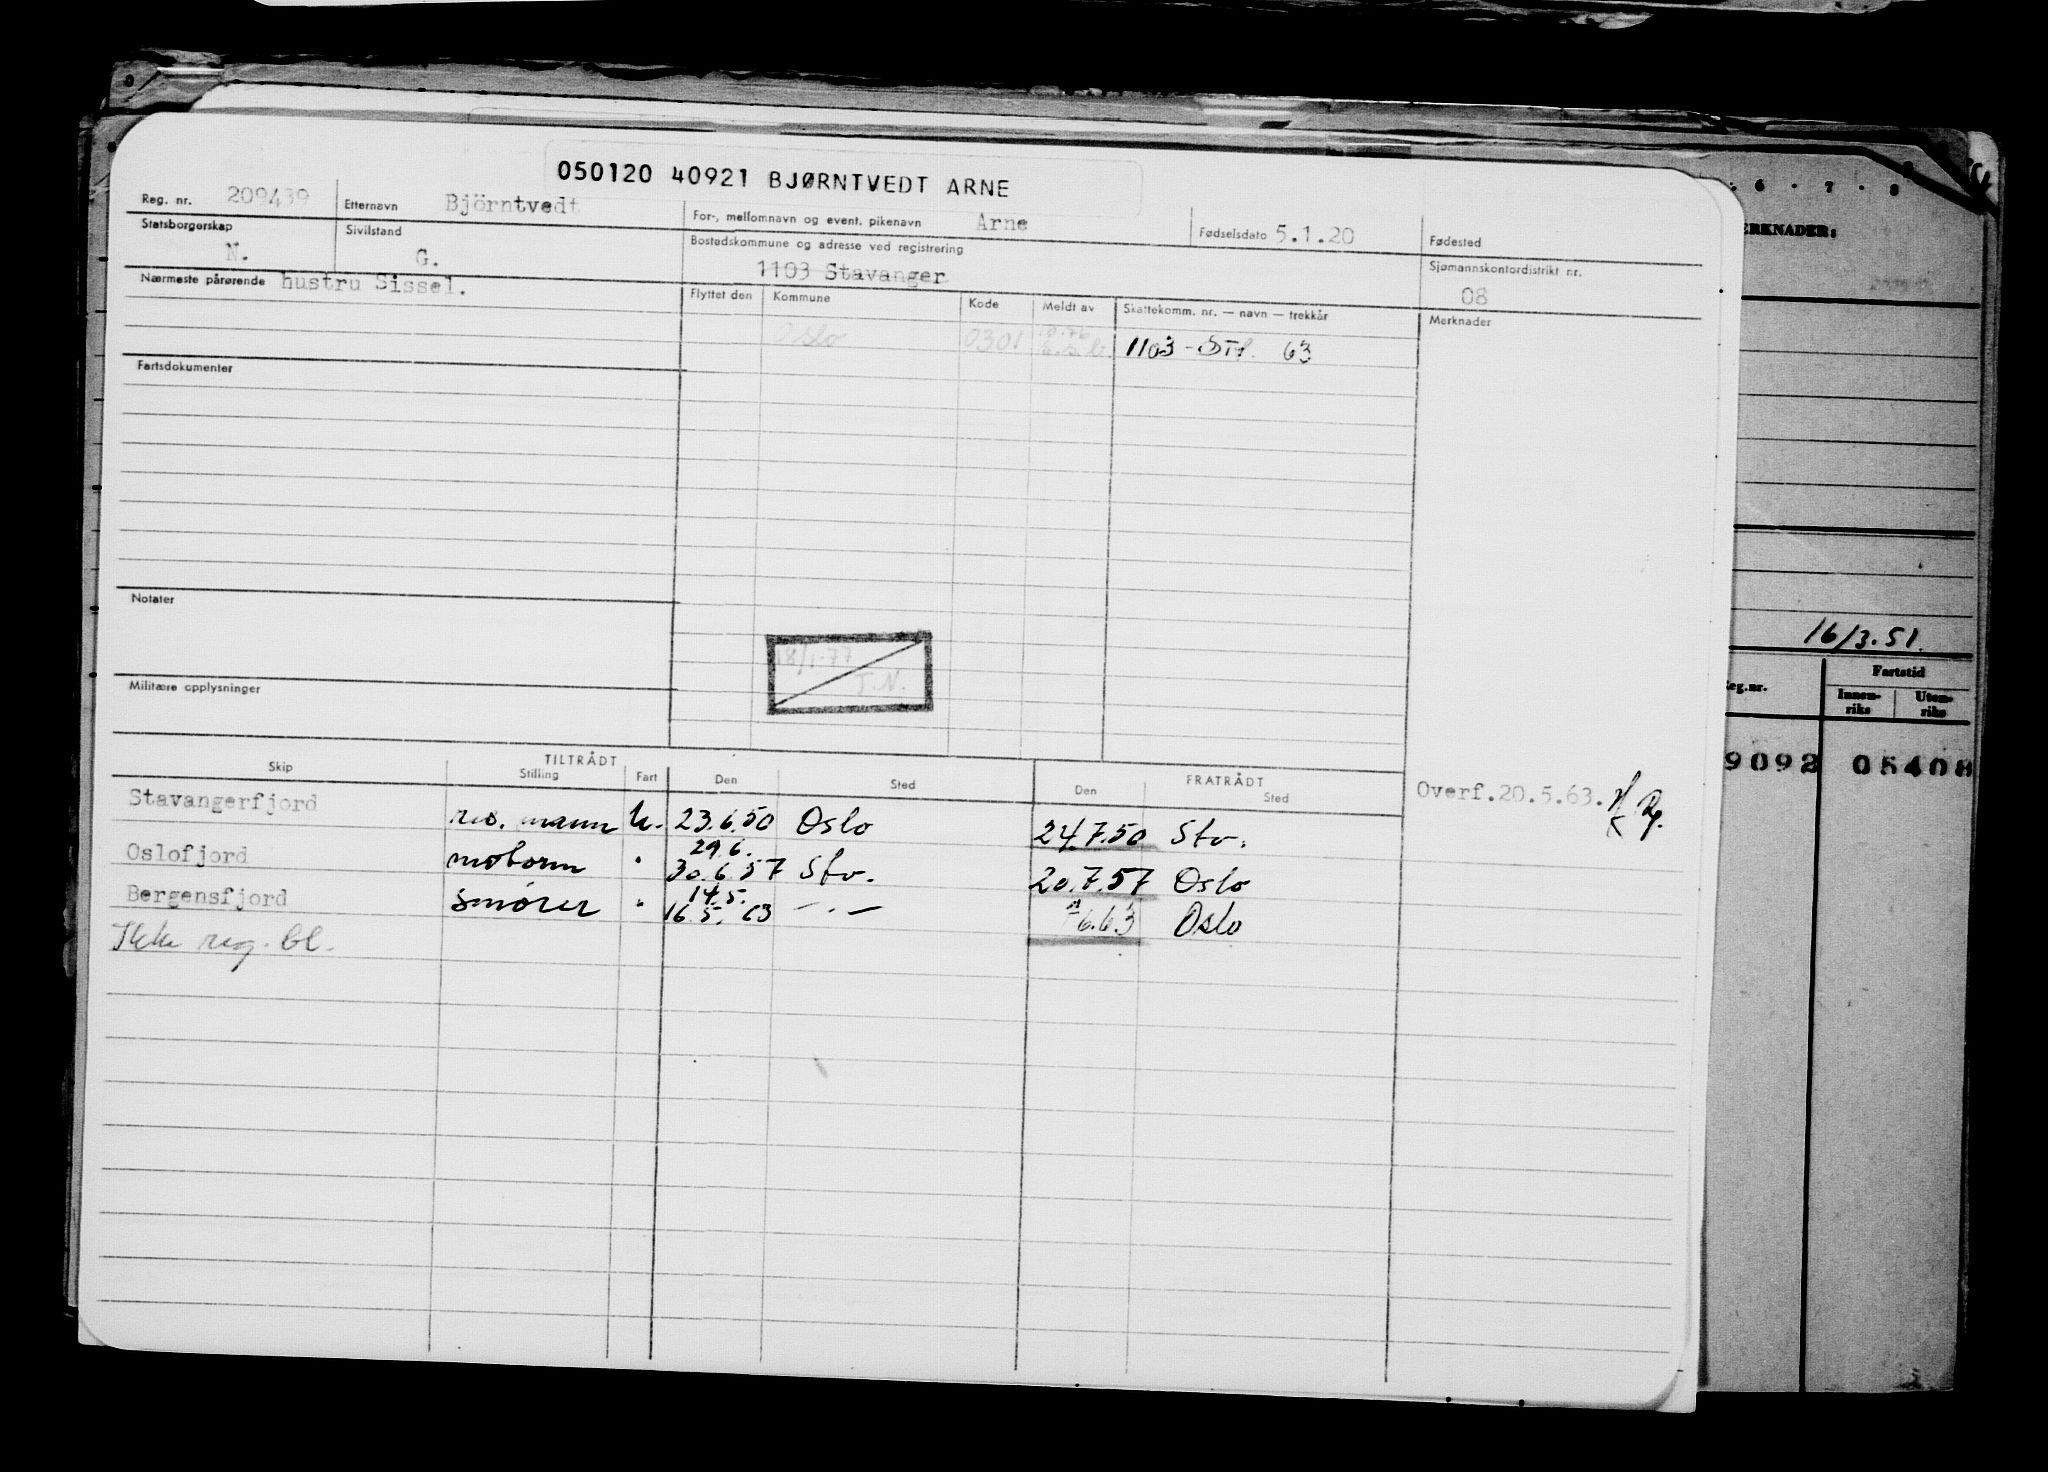 050120 40921 BJØRNTVEDT ARNE
Reg. nr. 209439 Etternavn Björntvedt For-, mellomnavn og event. pikenavn Arne Fødselsdato 5.1.20 Fødested
Statsborgerskap N. Sivilstand G. Bostedskommune og adresse ved registrering 1103 Stavanger Sjømannskontordistrikt nr. 08
Nærmeste pårørende hustru Sissel. Flyttet den Kommune Kode Meldt av Skattekomm. nr. — navn — trekkår Merknader
Oslo 0301 1103 - 63
Fartsdokumenter
Notater
18/1-77
J.N.
Militære opplysninger
TILTRÅDT FRATRÅDT
Skip Stilling Fart Den Sted Den Sted
Stavangerfjord res. mann U. 23.6.50 Oslo 24.7.50 Stv. Overf.20.5.63.
29.6.
Oslofjord motorm " 30.6.57 Stv. 20.7.57 Oslo
14.5.
Bergensfjord smører " 16.5.63 — . — 6.63 Oslo
Ikke reg. bl.
6 · 7 · 8
ERKNADER:
16/3.51.
eg.nr. Fartstid
Innen-
riks
Uten-
riks
9092 05408